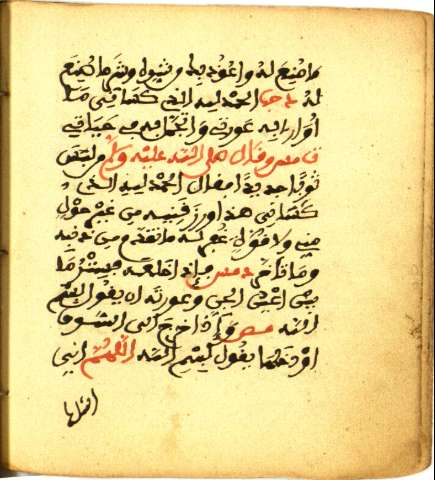 ما صنع له واعوذ بك من شره وشر ما صنع
له د حب الحمد لله الذي كساني ما
اواري به عورتي واتجمل به في حياتي
ق مس وقال صلى الله عليه وسلم من لبس
ثوبا جديدا فقال الحمد لله الذي
كساني هذا ورزقنيه من غير حول
مني ولا قوة غفر له ما تقدم من ذنبه
وما تاخر د مس فإذا خلعه فستر ما
بين اعين الجن وعورته ان يقول بسم
الله مص وإذا خرج الى السوق
او دخلها يقول بسم الله اللهم اني
اسئلك